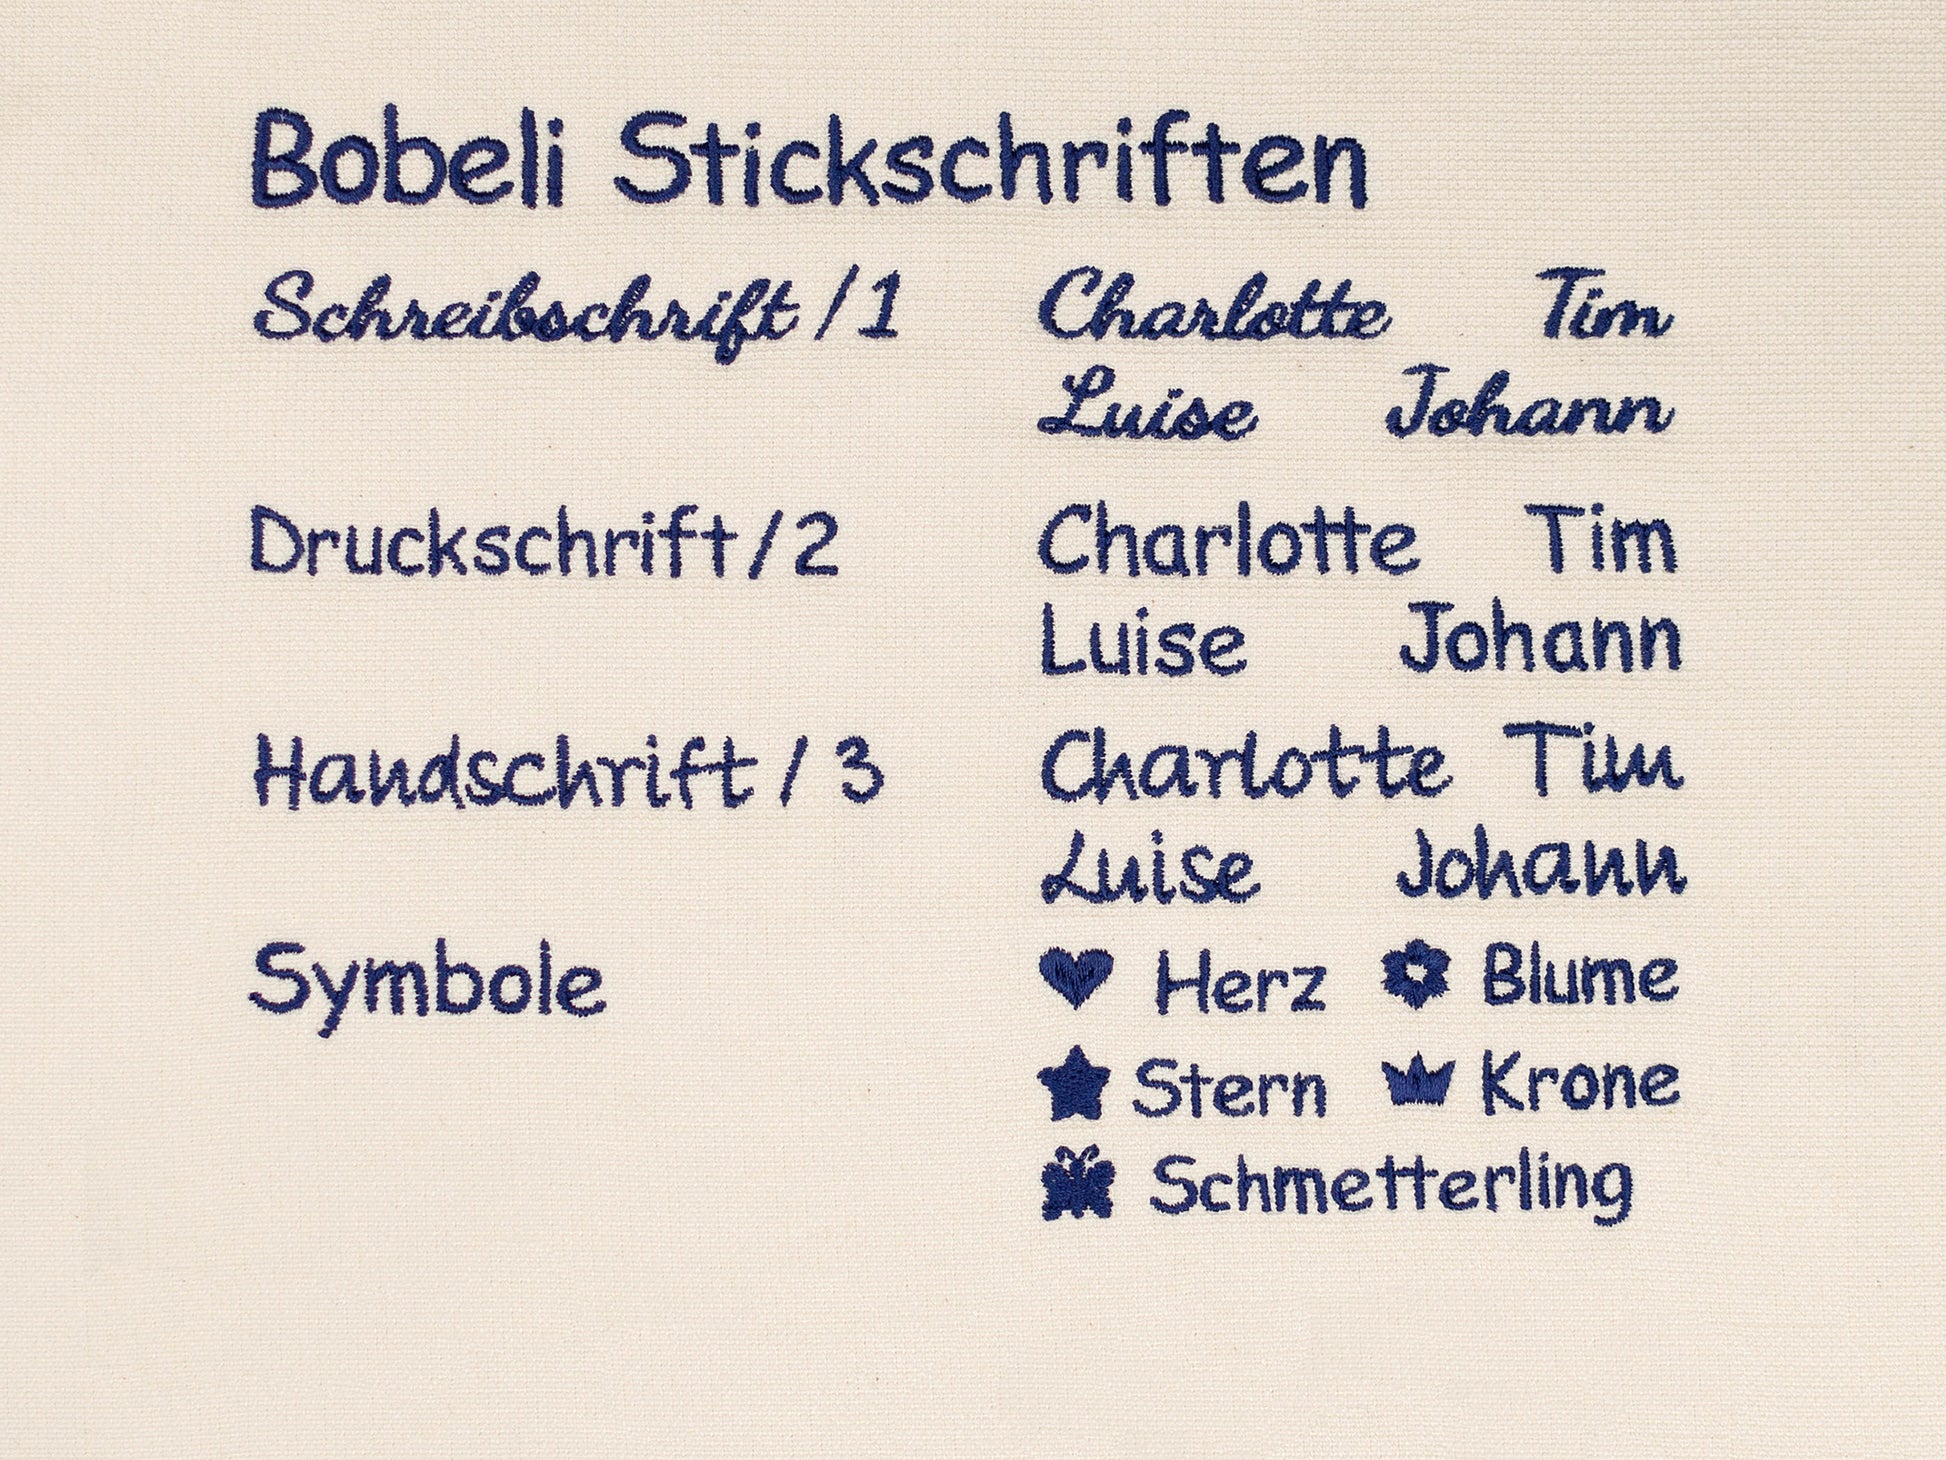 Bobeli Stickschriften
Schreibschrift / 1 Charlotte Tim
Luise Johann
Druckschrift / 2 Charlotte Tim
Luise Johann
Handschrift / 3 Charlotte Tim
Luise Johann
Symbole Herz Blume
Stern Krone
Schmetterling